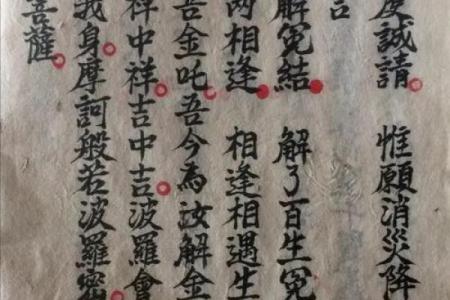 虔誠請 惟願消災降
言
解冤結 解了百生冤
兩相逢 相逢相遇生
唵金吒吾今為汝解金
祥中祥吉中吉波羅會
我身摩訶般若波羅蜜
菩薩